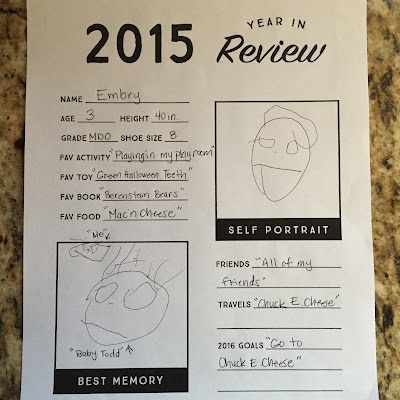 2015 YEAR IN
Review
NAME Embry
AGE 3 HEIGHT 40in.
GRADE MDO SHOE SIZE 8
FAV ACTIVITY "Playing in my playroom"
FAV TOY "Green Halloween Teeth"
FAV BOOK "Berenstain Bears"
FAV FOOD "Mac'n Cheese"
SELF PORTRAIT
"Me"
"Baby Todd"
BEST MEMORY
FRIENDS "All of my
friends"
TRAVELS "Chuck E Cheese"
2016 GOALS "Go to
Chuck E Cheese"